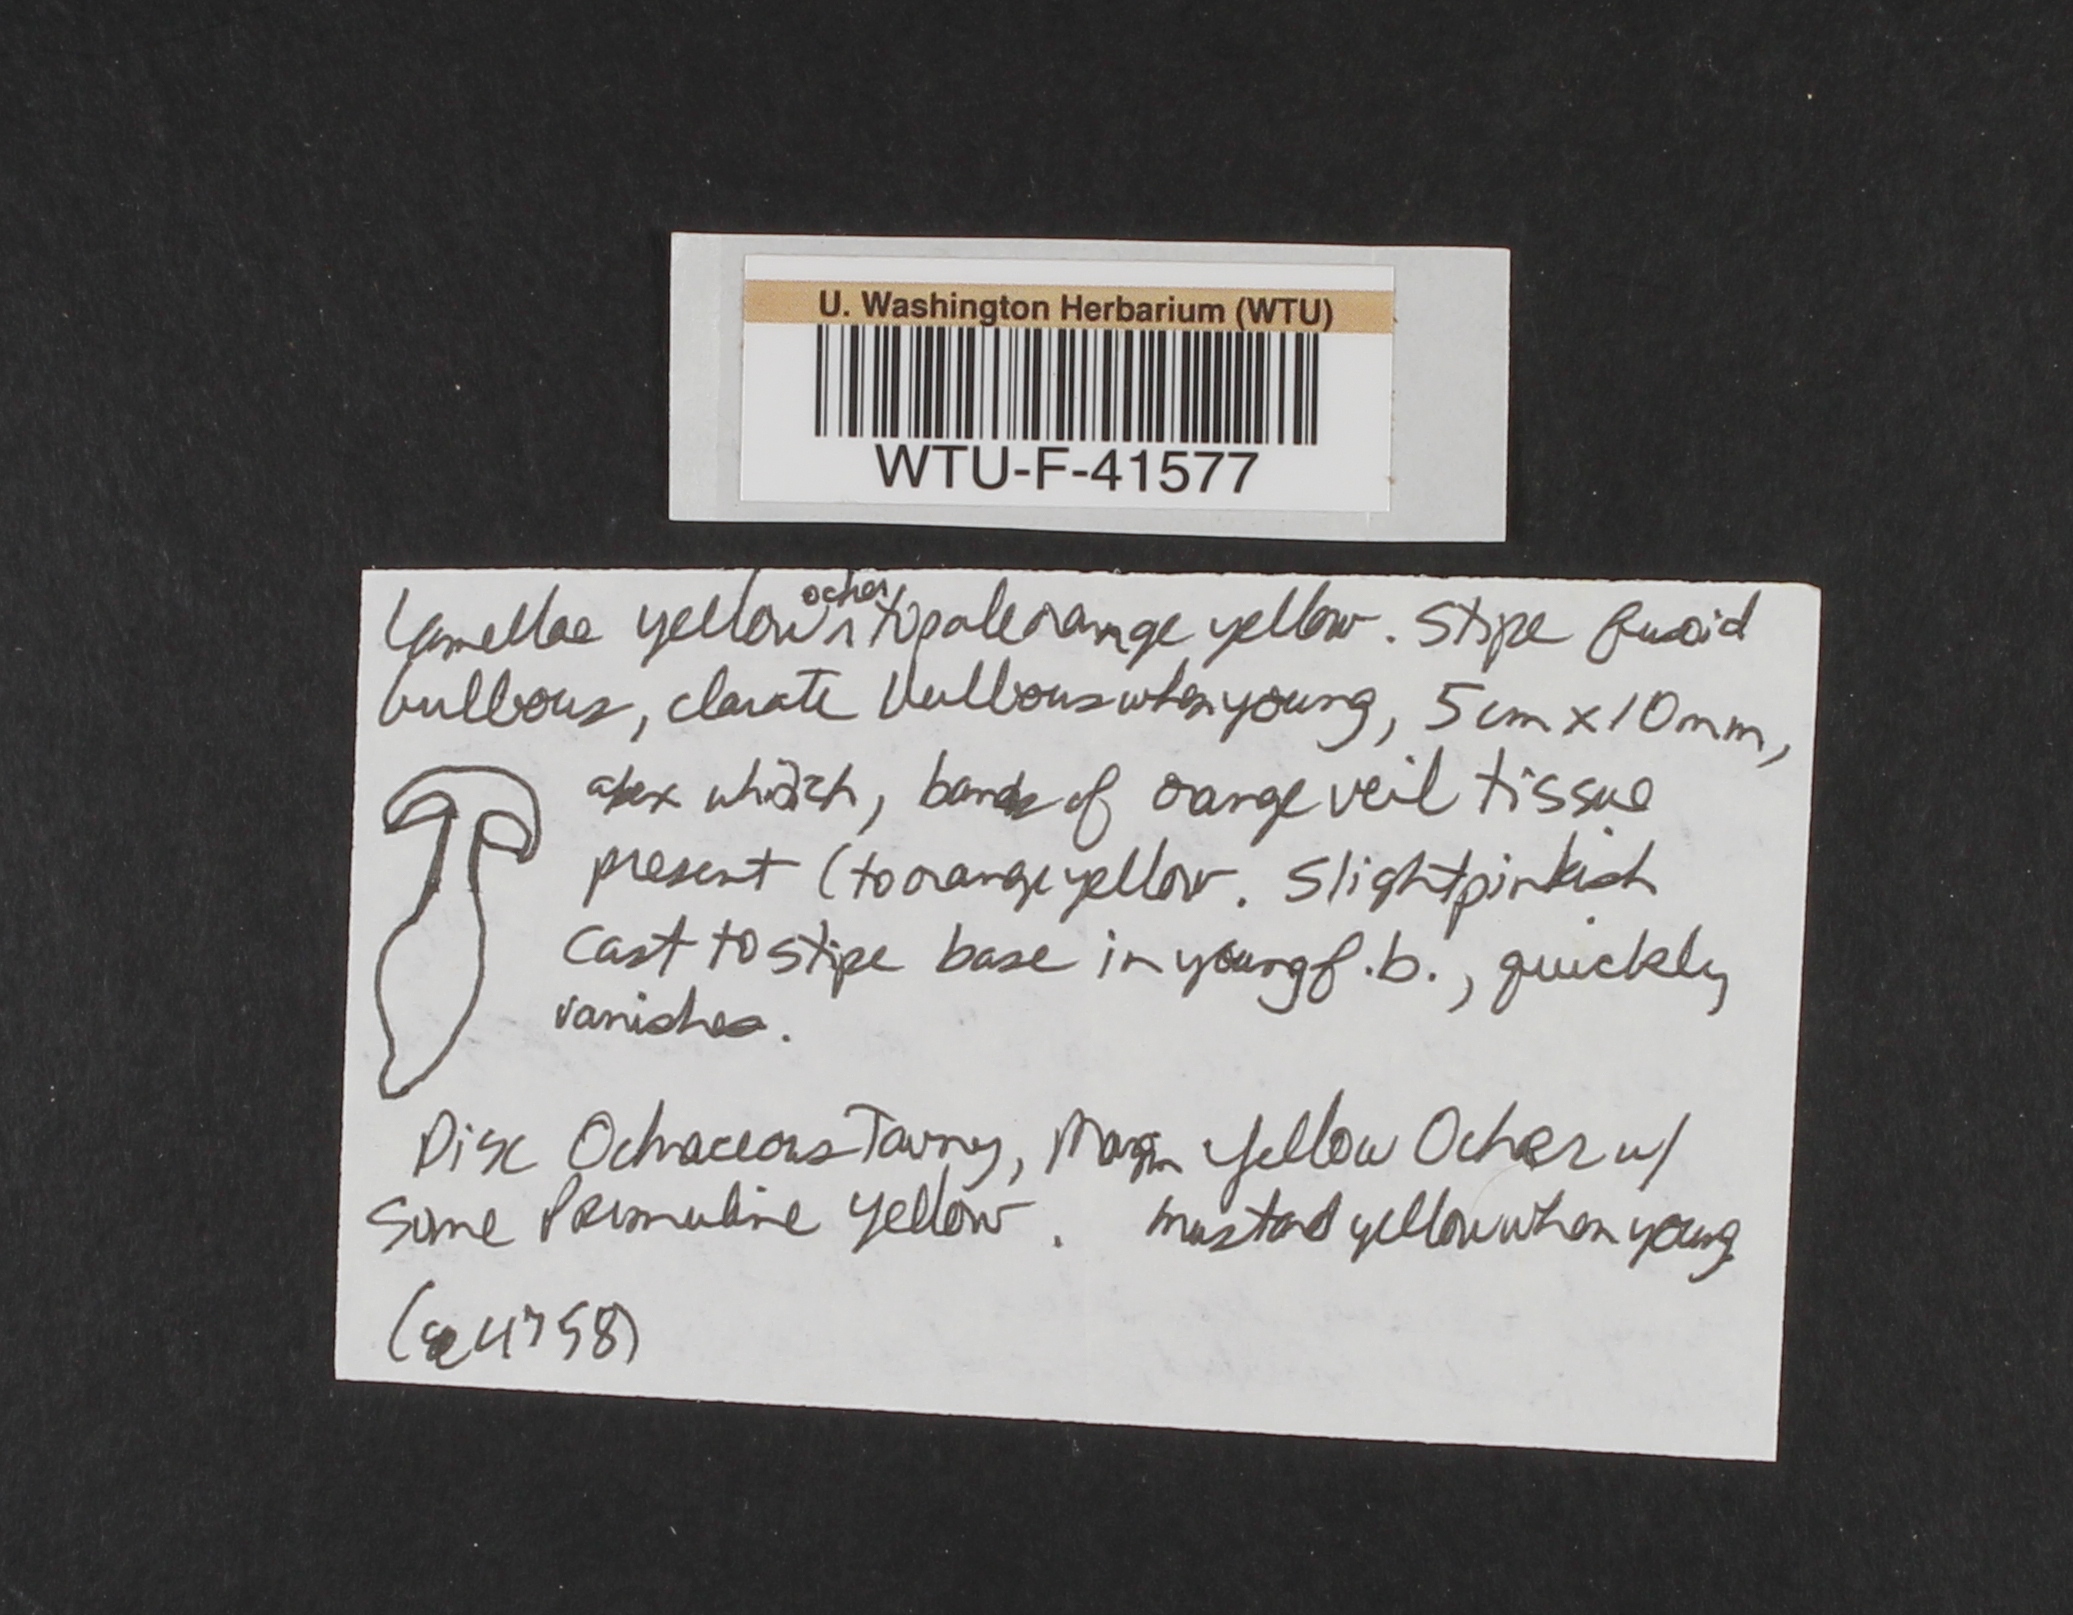 U. Washington Herbarium (WTU)
WTU-F-41577
Lamellae yellow ocher to pale orange yellow. Stipe fusoid
bulbous, clavate bulbous when young, 5cm x 10mm,
apex whitish, bands of orange veil tissue
present (to orange yellow. Slight pinkish
cast to stipe base in young f.b., quickly
vanishes.
Disc Ochraceous Tawny, Margin Yellow Ocher w/
Some Primuline Yellow. mustard yellow when young